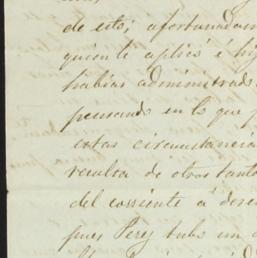 de esto; afortunadam
quien le aplicó é hi
habias administrado
pensando en lo que
estas circunstancia
resulta de otros tanto
del corriente á dose
pues Perez tubo un